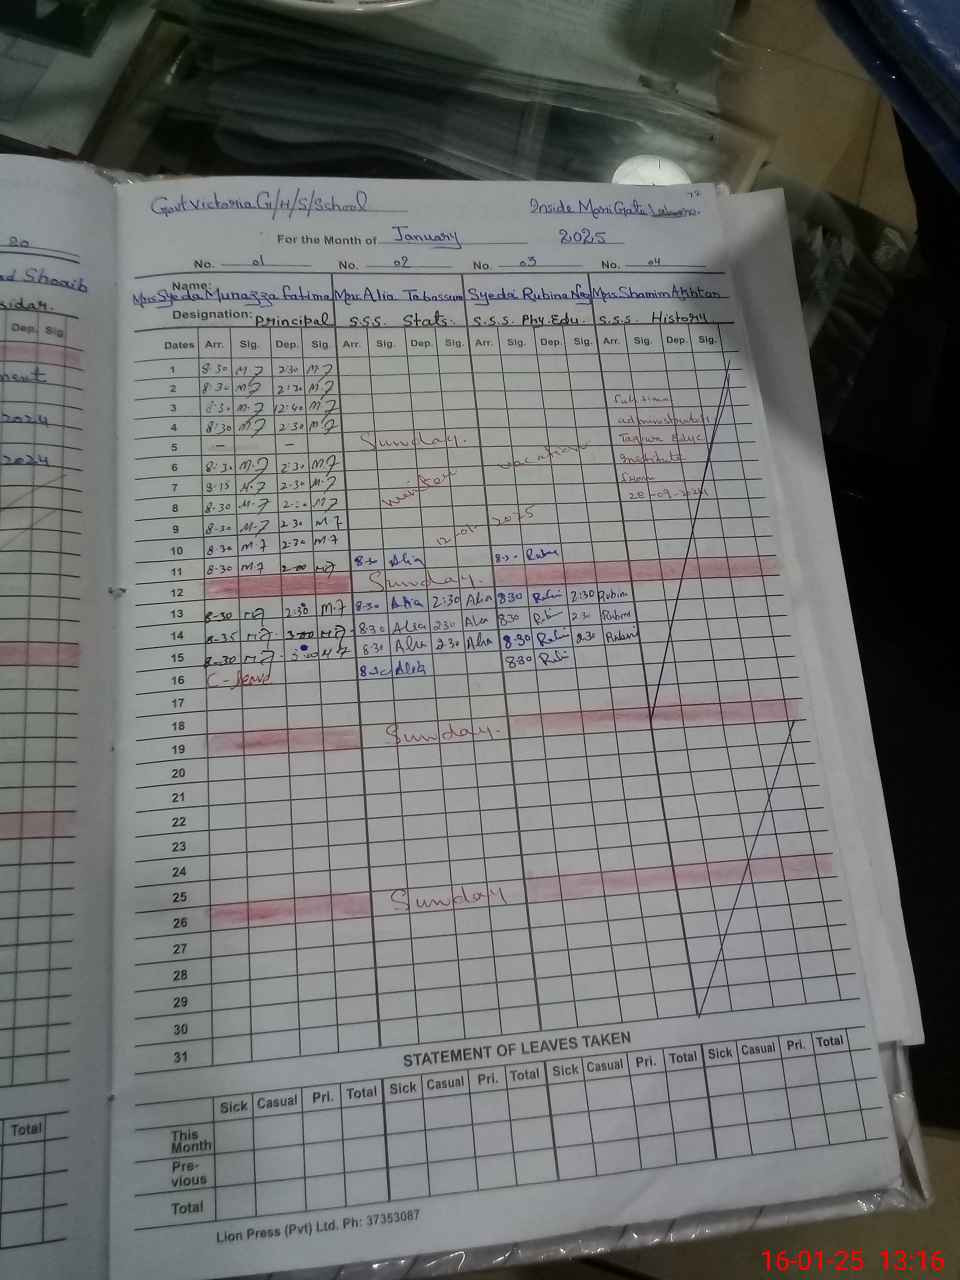 20
Shoaib
Dep. Sig
2024
2024
Total
Govt Victoria G/H/S/School
Inside Mori Gate Lahore.
For the Month of January 2025
No. 01 No. 02 No. 03 No. 04
Name: Mrs. Syeda Munazza Fatima Mrs. Alia Tabassum Syeda Rubina Mrs. Shamim Akhtar
Designation: Principal S.S.S. Stats. S.S.S. Phy. Edu. S.S.S. History
Dates Arr. Sig. Dep. Sig. Arr. Sig. Dep. Sig. Arr. Sig. Dep. Sig. Arr. Sig. Dep. Sig.
1 8:30 M.7 2:30 M.7
2 8:30 M.7 2:30 M.7
3 8:30 M.7 12:40 M.7 Full time
4 8:30 M.7 2:30 M.7
5 — — Sunday.
6 8:30 M.7 2:30 M.7 vacation Institute
7 8:15 M.7 2:30 M.7 winter From
8 8:30 M.7 2:30 M.7 28-09-2024
9 8:30 M.7 2:30 M.7
10 8:30 M.7 2:30 M.7 2025
11 8:30 M.7 2:00 M.7 8:30 Alia 8:30 Rubina
12 Sunday.
13 8:30 M.7 2:30 M.7 8:30 Alia 2:30 Alia 8:30 Rubi 2:30 Rubina
14 8:35 M.7 3:00 M.7 8:30 Alia 2:30 Alia 8:30 Rubi 2:30 Rubina
15 8:30 M.7 3:00 M.7 8:30 Alia 2:30 Alia 8:30 Rubi 2:30 Rubina
16 C-leave 8:30 Alia 8:30 Rubi
17
18
19 Sunday.
20
21
22
23
24
25
26 Sunday
27
28
29
30
31
STATEMENT OF LEAVES TAKEN
Sick Casual Pri. Total Sick Casual Pri. Total Sick Casual Pri. Total Sick Casual Pri. Total
This
Month
Pre-
vious
Total
Lion Press (Pvt) Ltd. Ph: 37353087
16-01-25 13:16